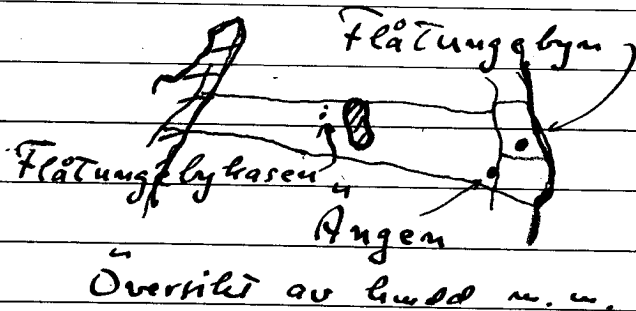 Flåtungebyn
Flåtungebykasen
Ängen
Översikt av hmdd m. m.